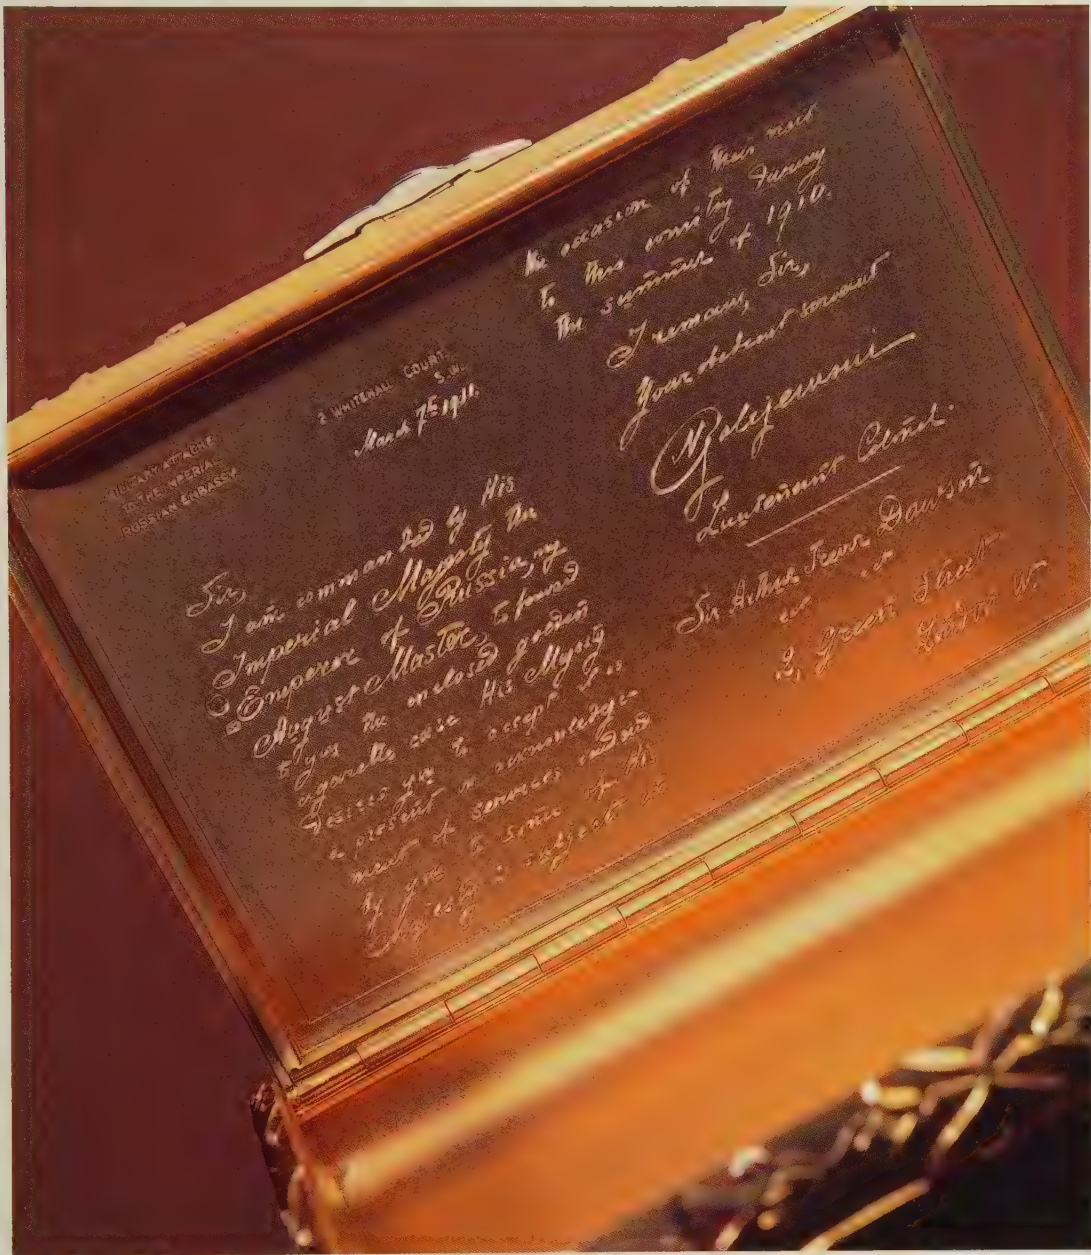 MILITARY ATTACHÉ
TO THE IMPERIAL
RUSSIAN EMBASSY.
2 WHITEHALL COURT,
S.W.
March 7th 1911.
Sir,
I am commanded by His
Imperial Majesty the
Emperor of Russia, my
August Master, to forward
to you the enclosed golden
cigarette case His Majesty
desires you to accept as
a present in acknowledge-
ment of services rendered
by you to some of His
Majesty's subjects on
the occasion of their visit
to this country during
the summer of 1910.
I remain, Sir,
Your obedient servant
Lieutenant Colonel.
Sir Arthur Trevor Dawson
Green Street
London W.